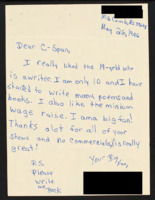 May 26, 1996
Dear C-Span,
I really liked the 14-yr old who
is a writer. I am only 10 and I have
started to write many poems and
books. I also like the minium
wage raise. I am a big fan!
Thanks alot for all of your
shows and no commercials is really
great!
Your Big Fan,
P.S.
Please
write
me
back